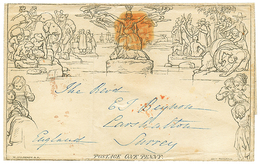 The Revd
E J Beynon
Carshalton
England Surrey
POSTAGE ONE PENNY.